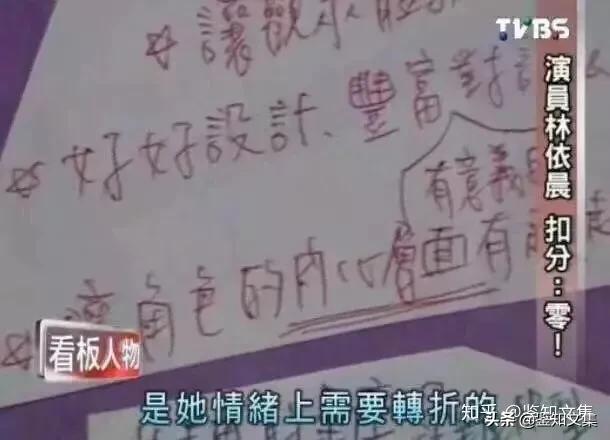 TVBS
演員林依晨 扣分：零！
☆讓觀眾
☆好好設計、豐富對
有意義
☆讓角色的內心層面有
看板人物
是她情緒上需要轉折的
知乎 @鉴知文集
头条 @鉴知文集